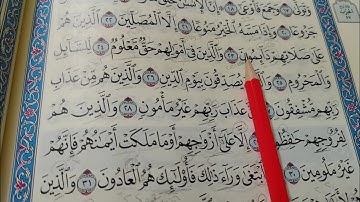 جَزُوعًا ٢٠ وَإِذَا مَسَّهُ ٱلْخَيْرُ مَنُوعًا ٢١ إِلَّا ٱلْمُصَلِّينَ ٢٢ ٱلَّذِينَ هُمْ
عَلَىٰ صَلَاتِهِمْ دَآئِمُونَ ٢٣ وَٱلَّذِينَ فِىٓ أَمْوَٰلِهِمْ حَقٌّ مَّعْلُومٌ ٢٤ لِّلسَّآئِلِ
وَٱلْمَحْرُومِ ٢٥ وَٱلَّذِينَ يُصَدِّقُونَ بِيَوْمِ ٱلدِّينِ ٢٦ وَٱلَّذِينَ هُم مِّنْ عَذَابِ
رَبِّهِم مُّشْفِقُونَ ٢٧ إِنَّ عَذَابَ رَبِّهِمْ غَيْرُ مَأْمُونٍ ٢٨ وَٱلَّذِينَ هُمْ
لِفُرُوجِهِمْ حَٰفِظُونَ ٢٩ إِلَّا عَلَىٰٓ أَزْوَٰجِهِمْ أَوْ مَا مَلَكَتْ أَيْمَٰنُهُمْ فَإِنَّهُمْ
غَيْرُ مَلُومِينَ ٣٠ فَمَنِ ٱبْتَغَىٰ وَرَآءَ ذَٰلِكَ فَأُو۟لَٰٓئِكَ هُمُ ٱلْعَادُونَ ٣١ وَٱلَّذِينَ